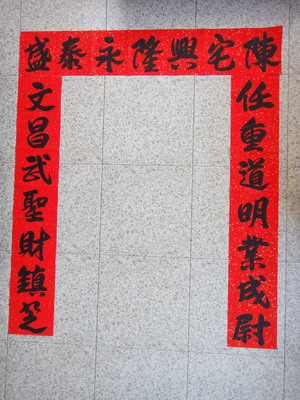 陳宅興隆永泰盛
任重道明業成尉
文昌武聖財鎮芝